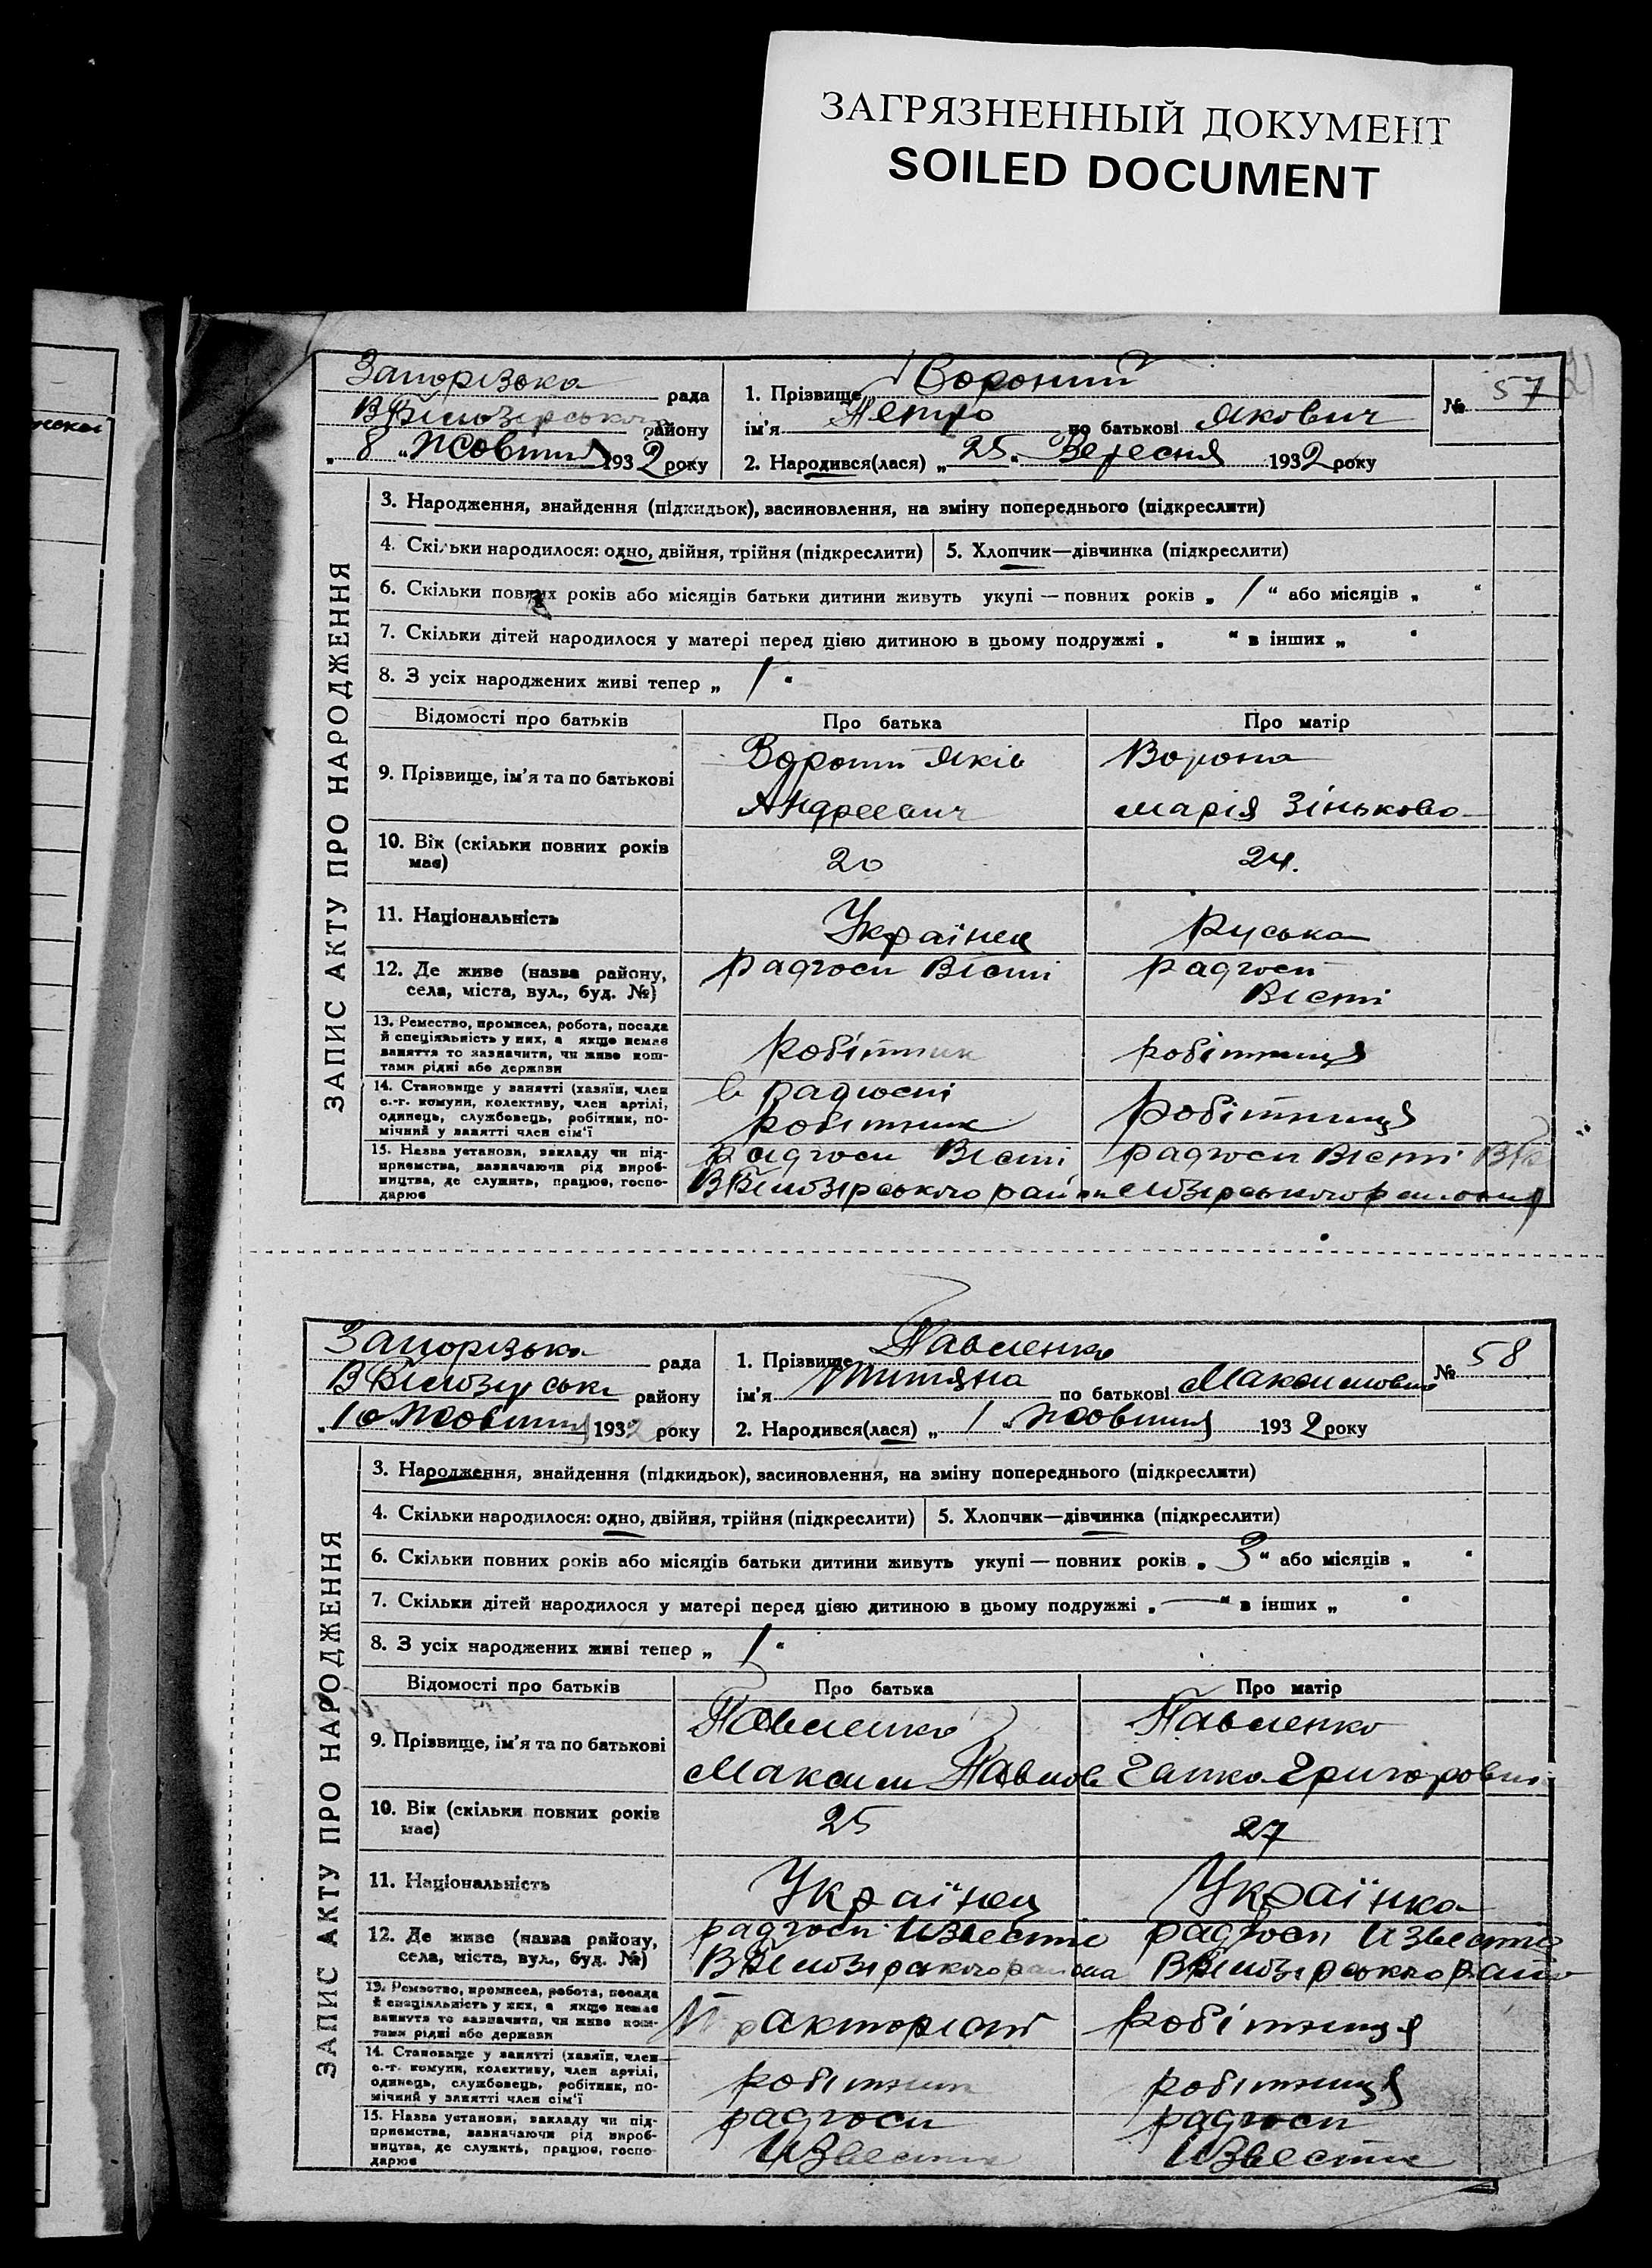 ЗАГРЯЗНЕННЫЙ ДОКУМЕНТ
SOILED DOCUMENT
ЗАПИС АКТУ ПРО НАРОДЖЕННЯ
Запорізька рада
району
„ 8 “ Жовтня 1932 року
1. Прізвище
ім'я Петро по батькові Якович
2. Народився(лася) „ 25 “ Вересня 1932 року
№ 57
3. Народження, знайдення (підкидьок), засиновлення, на зміну попереднього (підкреслити)
4. Скільки народилося: одно, двійня, трійня (підкреслити) 5. Хлопчик—дівчинка (підкреслити)
6. Скільки повних років або місяців батьки дитини живуть укупі — повних років „ 1 “ або місяців „ “
7. Скільки дітей народилося у матері перед цією дитиною в цьому подружжі „ “ в інших „ “
8. З усіх народжених живі тепер „ 1 “
Відомості про батьків Про батька Про матір
9. Прізвище, ім'я та по батькові Яків Ворона
Андреевич Марія Зіньково
10. Вік (скільки повних років 20 24.
має)
11. Національність Українец Руська
12. Де живе (назва району, радгосп Вісті радгосп
села, міста, вул., буд. №) Вісті
13. Ремество, промисел, робота, посада
й спеціяльність у них, а якщо немає робітник робітниця
заняття то зазначити, чи живе кош-
тами рідні або держави
14. Становище у занятті (хазяїн, член в радгоспі
с.-г. комуни, колективу, член артілі,
одинець, службовець, робітник, по- робітник робітниця
мічний у занятті член сім'ї
15. Назва установи, закладу чи під- радгосп Вісті радгосп Вісті
приємства, зазначаючи рід вироб-
ництва, де служить, працює, госпо-
дарює
ЗАПИС АКТУ ПРО НАРОДЖЕННЯ
Запорізька рада
району
„ 10 “ Жовтня 1932 року
1. Прізвище Павленко
ім'я по батькові
2. Народився(лася) „ 1 “ Жовтня 1932 року
№ 58
3. Народження, знайдення (підкидьок), засиновлення, на зміну попереднього (підкреслити)
4. Скільки народилося: одно, двійня, трійня (підкреслити) 5. Хлопчик—дівчинка (підкреслити)
6. Скільки повних років або місяців батьки дитини живуть укупі — повних років „ 3 “ або місяців „ “
7. Скільки дітей народилося у матері перед цією дитиною в цьому подружжі „ — “ в інших „ “
8. З усіх народжених живі тепер „ 1 “
Відомості про батьків Про батька Про матір
9. Прізвище, ім'я та по батькові Павленко Павленко
Максим Павлов
10. Вік (скільки повних років 25 27
має)
11. Національність Українец Українка
12. Де живе (назва району, радгосп Известие радгосп Известие
села, міста, вул., буд. №)
13. Ремество, промисел, робота, посада
й спеціяльність у них, а якщо немає Тракторіст робітниця
заняття то зазначити, чи живе кош-
тами рідні або держави
14. Становище у занятті (хазяїн, член
с.-г. комуни, колективу, член артілі,
одинець, службовець, робітник, по- робітник робітниця
мічний у занятті член сім'ї
15. Назва установи, закладу чи під- радгосп радгосп
приємства, зазначаючи рід вироб-
ництва, де служить, працює, госпо- Известие Известие
дарює